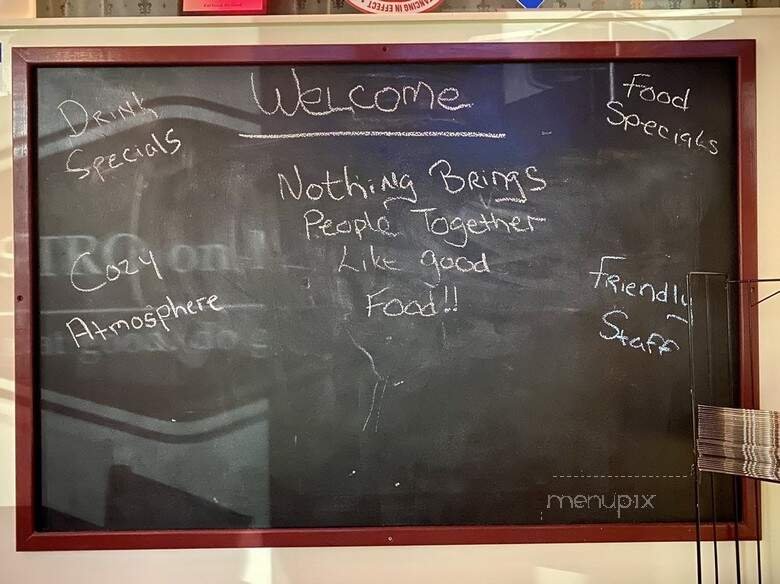 ANCING IN EFFECT
Welcome
Drink
Specials
Food
Specials
Nothing Brings
People Together
Like good
Food!!
Cozy
Atmosphere
Friendly
Staff
menupix